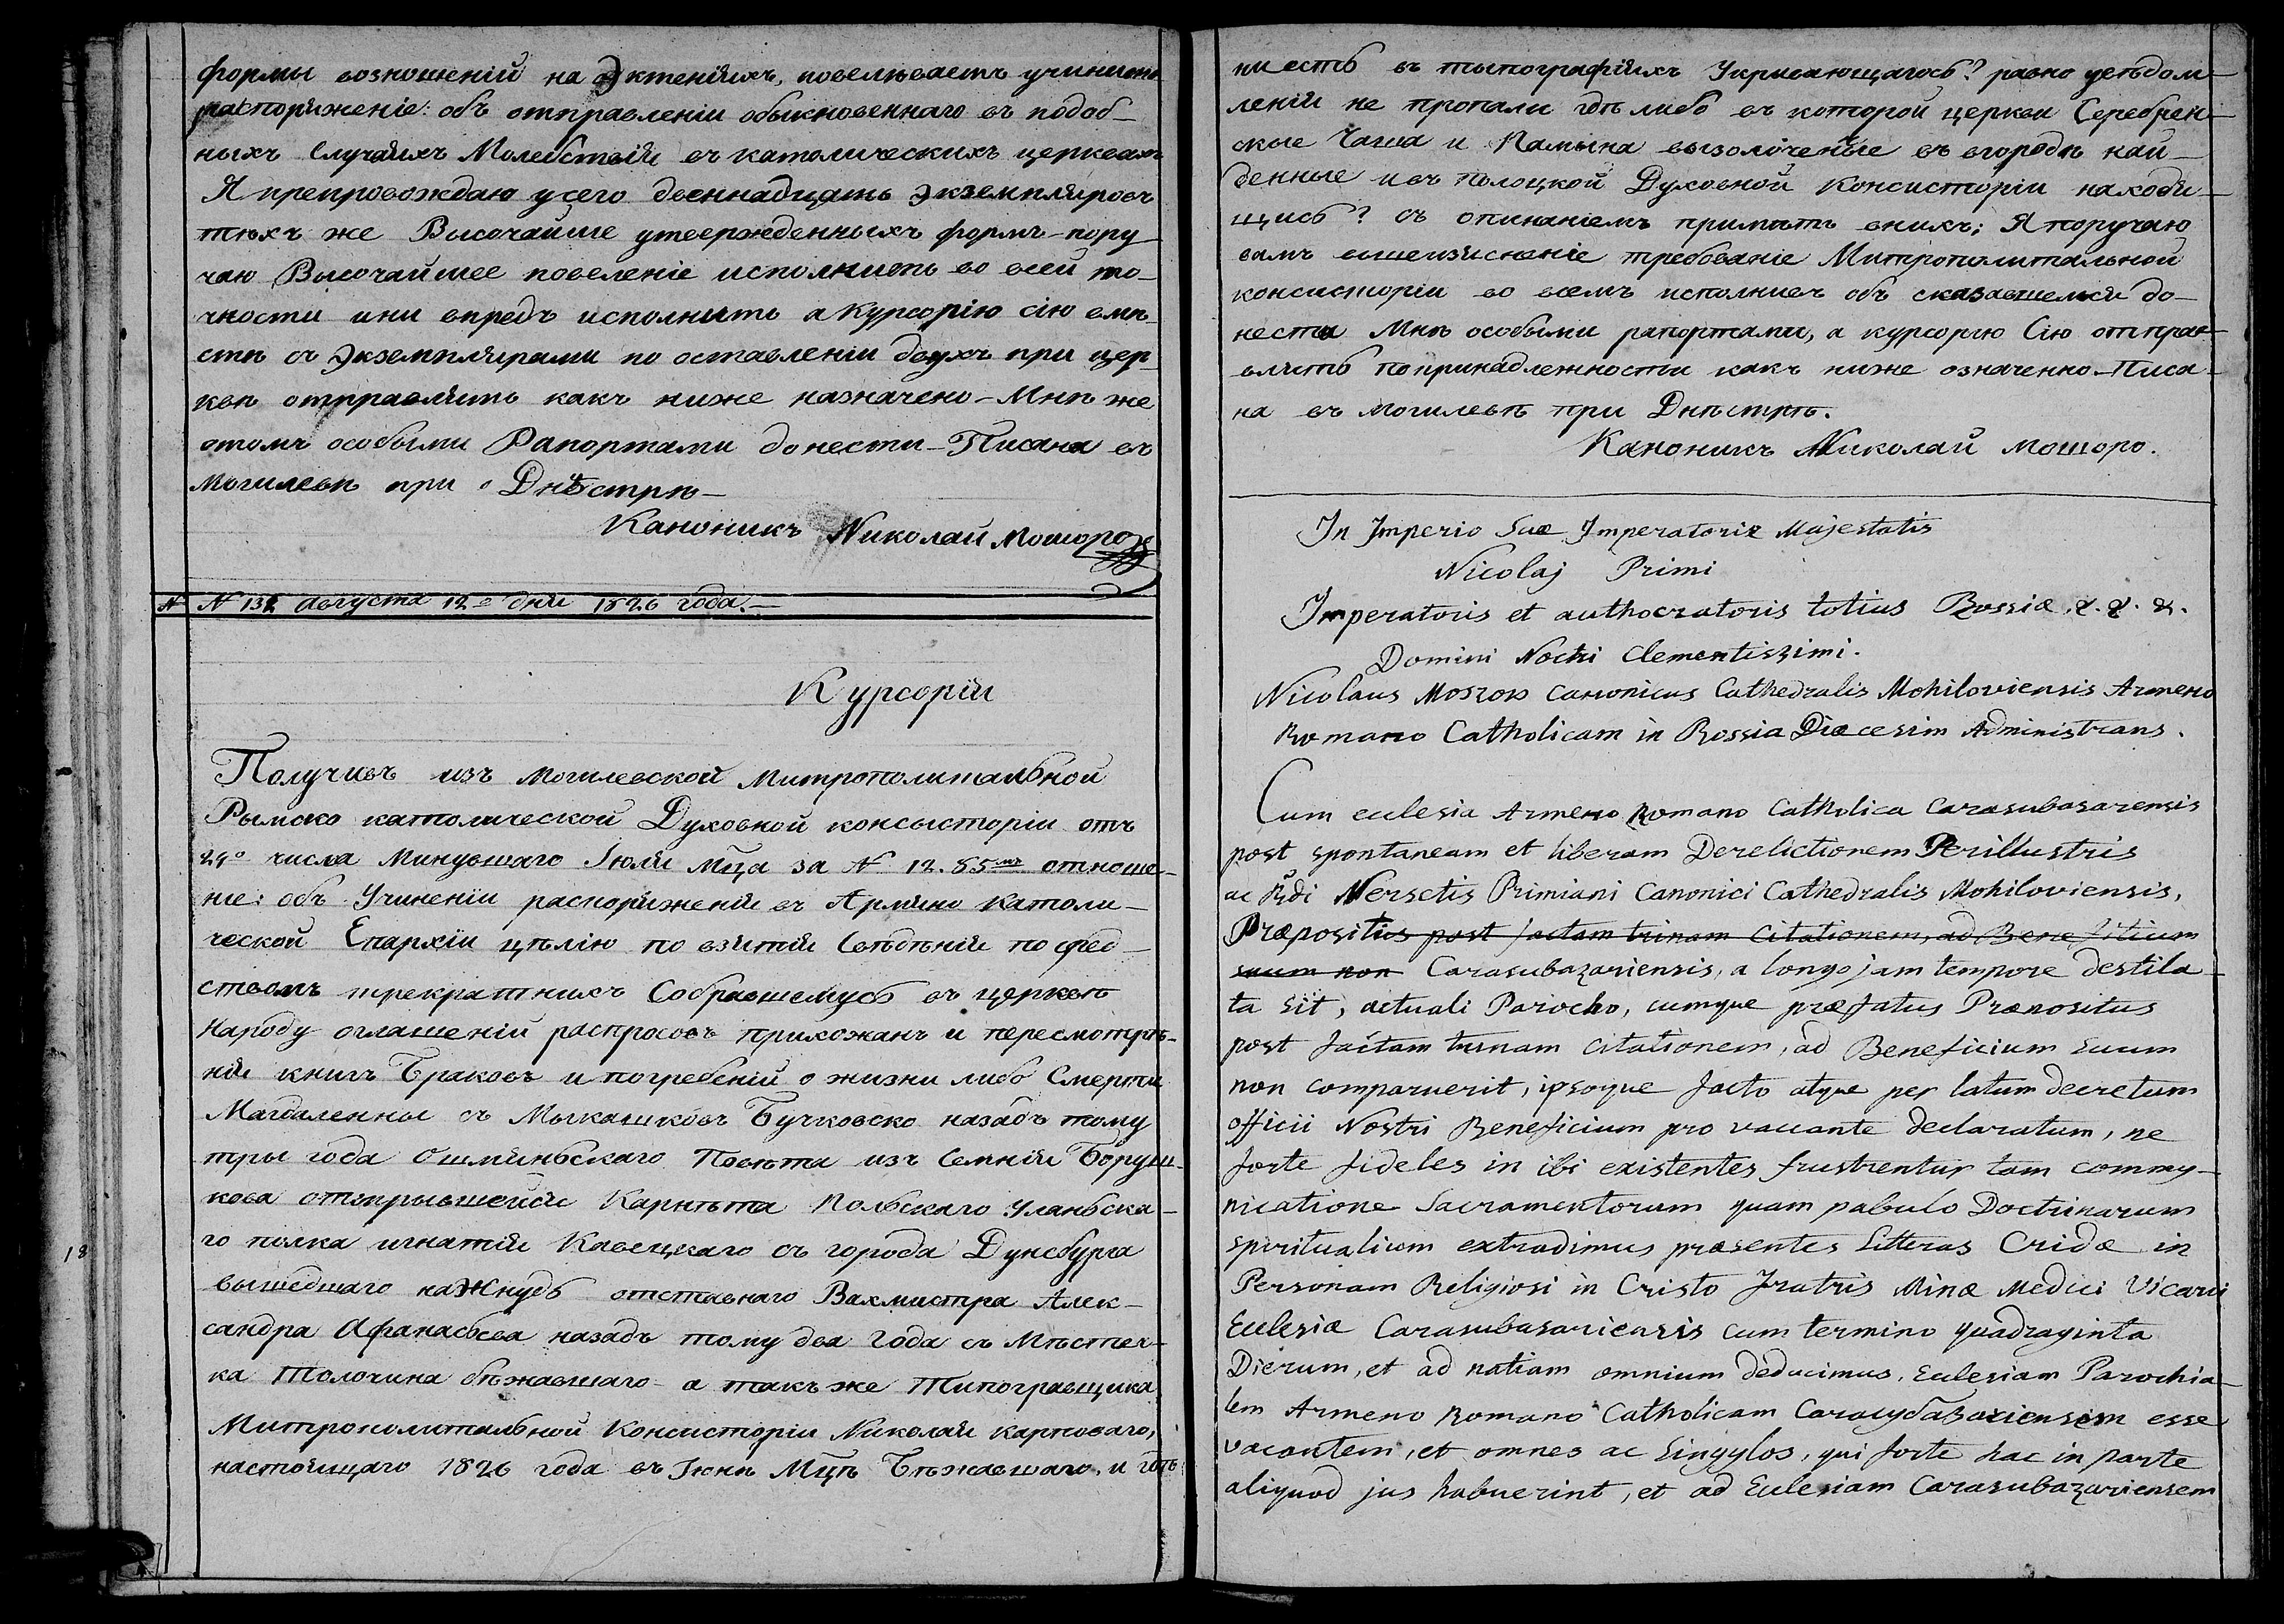 формы возношеній на Эктеніяхъ, повелѣваетъ учинить
распоряженіе: объ отправленіи обыкновеннаго въ подоб-
ныхъ Случаяхъ Молебствія въ католическихъ церквахъ
Я препровождаю у сего двеннадцать Экземпляровъ
тѣхъ же Высочайше утвержденныхъ формъ - пору
чаю Высочайшее повеленіе исполнить во всей то-
чности и на впредъ исполнить а Курсорію сію вмѣ-
стѣ съ Экземплярами по оставленіи двухъ при цер
квѣ отправлять какъ ниже назначено - Мнѣ же
отомъ особыми Рапортами донести - Писана въ
Могилевѣ при Днѣстрѣ -
Каноникъ Николай Мошоро
№ 132 августа 12го дня 1826 года. -
Курсорія
Получивъ изъ Могилевской Митрополитальной
Рымско католической Духовной консысторіи отъ
29о числа Минувшаго Іюля Мца за № 12.85мъ отноше-
ніе: объ Учиненіи распоряженія въ Армяно Католи-
ческой Епархіи цѣлію по взятія Свѣдѣній по сред
ствомъ трекратныхъ Собравшемусь въ церквѣ
Народу оглашеній распросовъ прихожанъ и пересмотрѣ-
нія книгъ Браковъ и погребеній о жизни либо Смерти
Магдаленны съ Мыкашковъ Бучковско назадъ тому
тры года Ошмяньскаго Повѣта изъ Семнія Боруш-
кова отпрывшейся Карнѣта Польскаго Уланьска-
го полка игнатія Кавецкаго съ города Дунебурга
вышедшаго на Жнудь отставнаго Вахмистра Алек-
сандра Афанасьева назадъ тому два года съ Мѣстеч-
ка Толочина бѣжавшаго - а такъ же Типогравщика
Митрополитальной Консисторіи Николая карповаго,
настоящаго 1826 года въ Іюнѣ Мцѣ Бѣжавшаго, и гдѣ
ниесть въ тыпографіяхъ Укривающагось? равно уведом-
леній не пропали гдѣ либо въ которой церкви Серебрен-
ские Чаша и Памына визолоченые въ вгородѣ най-
денные и въ Полоцкой Духовной Консисторіи находя-
щись? съ описаніемъ примѣтъ внихъ; Я поручаю
вамъ вышеизясненіе требованіе Митрополитальной
консисторіи во всемъ исполнивъ объ сказавшемся до-
нести Мнѣ особыми рапортами, а курсорію Сію отпра-
влять по принадлежности какъ ниже означенно - Писа-
на въ Могилевѣ при Днѣстрѣ.
Каноникъ Николай Мошоро.
In Imperio Suæ Imperatoriæ Majestatis
Nicolaj Primi
Imperatoris et authocratoris totius Rossiæ, &. &. &.
Domini Nostri Clementissimi.
Nicolaus Moszoro Canonicus Cathedralis Mohiloviensis Armeno
Romano Catholicam in Rossia Diæcesim Administrans.
Cum eclesia Armeno Romano Catholica Carasubasarensis
post spontaneam et liberam Derelictionem Perillustris
ac Rdi Nersetis Primiani Canonici Cathedralis Mohiloviensis,
Præpositus post factam trinam Citationem, ad Beneficium
suum non Carasubazariensis, a longo jam tempore destitu-
ta sit, actuali Parocho, cumque præfatus Præpositus
post factam trinam citationem, ad Beneficium Suum
non comparuerit, ipsoque facto atque per latum decretum
officii Nostri Beneficium pro vaccante declaratum, ne
forte fideles in ibi existentes frustrentur tam commu-
nicatione Sacramentorum quam pabulo Doctrinarum
spiritualium extradimus præsentes Litteras Cridæ in
Personam Religiosi in Cristo Fratris Minæ Medici Vicarii
Eclesiæ Carasubasariensis cum termino quadraginta
Dierum, et ad notiam omnium deducimus, Eclesiam Parochia-
lem Armeno Romano Catholicam Carasubasariensem esse
vacantem, et omnes ac Singulos, qui forte hac in parte
aliquod jus habuerint, et ad Eclesiam Carasubazariensem